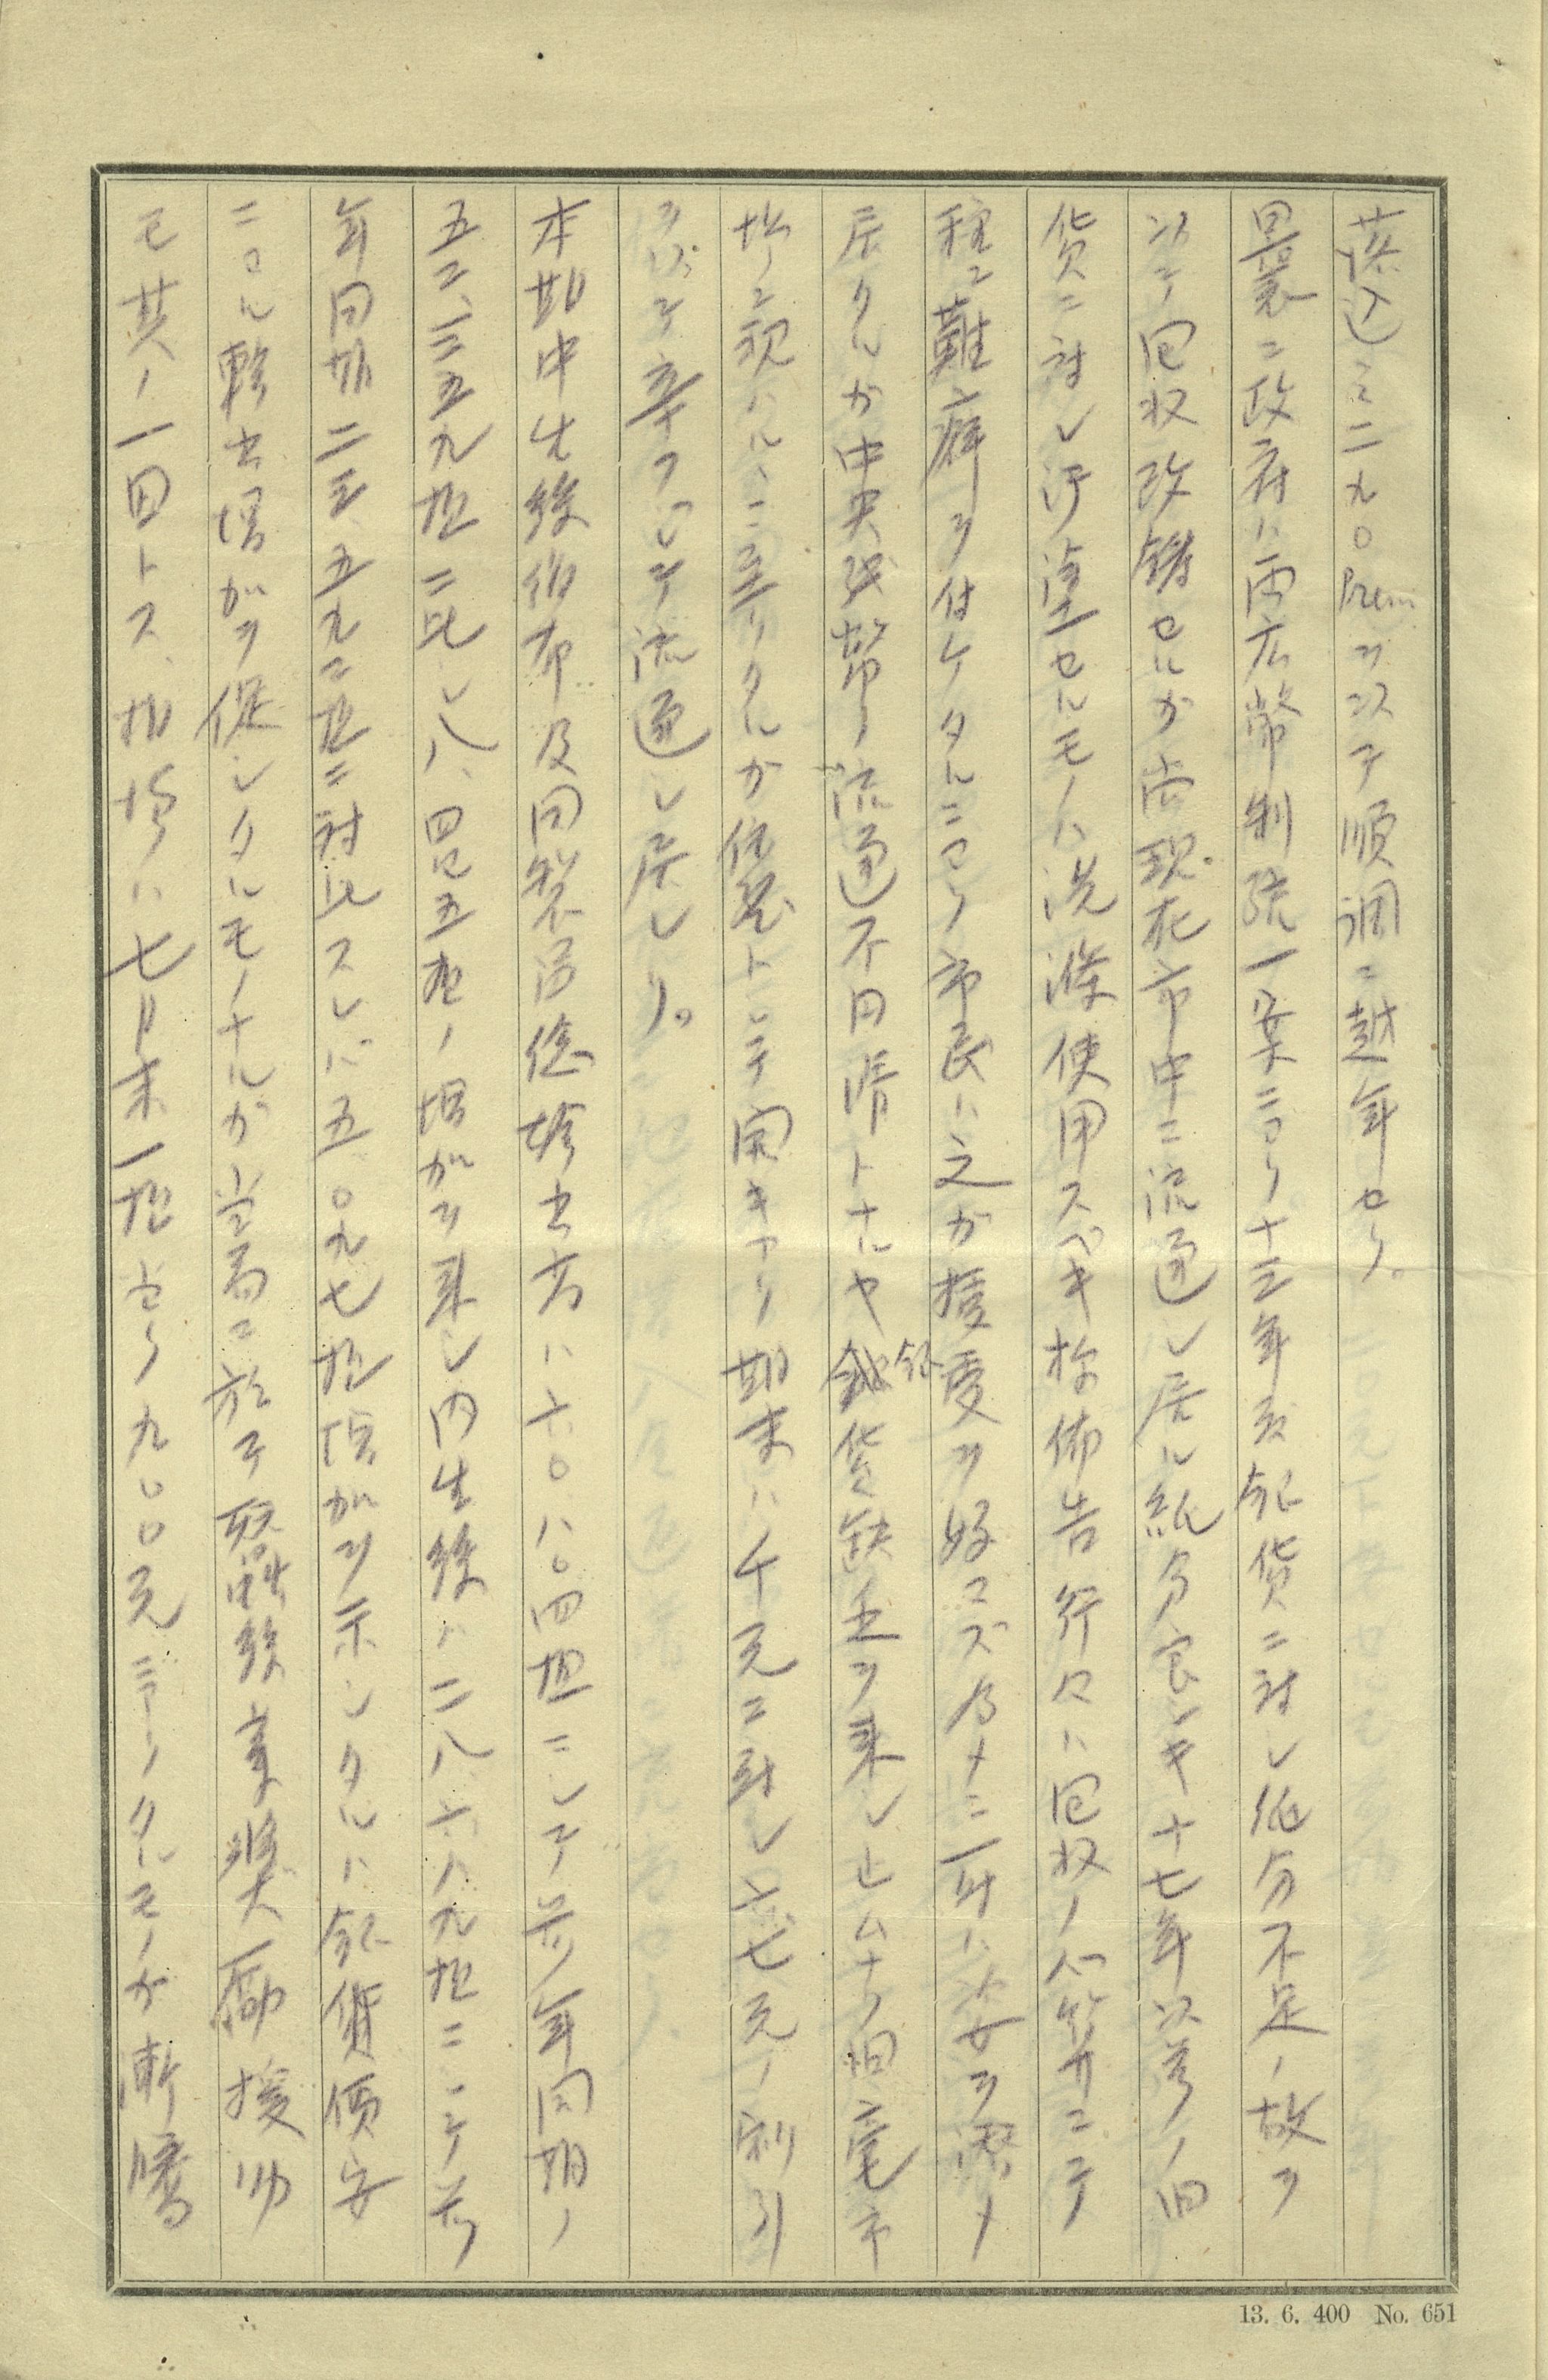 落込ミ二九〇Premヲ以テ順調ニ越年セリ。
曩ニ政府ハ両広幣制統一案ニヨリ十三年度銀貨ニ対シ低分不足ノ故ヲ
以テ回収改鋳セルガ尚現在市中ニ流通シ居ル純分良シキ十七年以前ノ旧
貨ニ対シ汚塗セルモノハ洗滌使用スベキ様佈告行々ハ回収ノ心算ニテ
種々難癖ヲ付ケタルニヨリ市民ハ之ガ授受ヲ好マズ為メニ一時ハ姿ヲ潜メ
居タルガ中央紙幣ノ流通不円滑トナルヤ銀貨缺乏ヲ来シ止ムナク旧毫市
場ニ現ハルヽニ至リタルガ依然トシテ開キアリ期末ハ千元ニ対シ六七元ノ割引
ヲ以テ辛フジテ流通シ居レリ。
本期中生絲絹布及同製品総輸出高ハ六〇、八〇四担ニシテ前年同期ノ
五二、三五九担ニ比シ八、四四五担ノ増加ヲ来シ内生絲ハ二八、六八九担ニシテ前
年同期二三、五九二担ニ対比スレバ五、〇九七担増加ヲ示シタルハ銀貨価安
ニヨル輸出増加ヲ促シタルモノナルガ当局ニ於テ取ル蚕絲業奨励援助
モ其ノ一因トス、相場ハ七月末一担当リ九〇〇元ニアリタルモノガ漸騰
13. 6. 400 No. 651